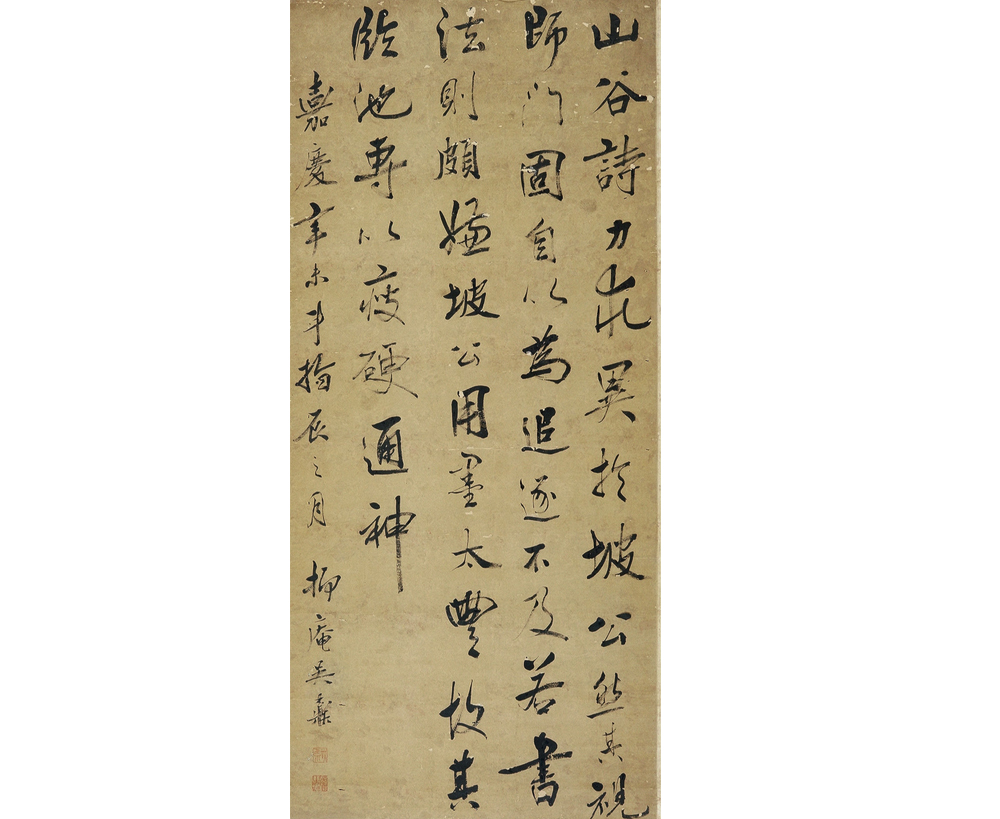 山谷詩力求異於坡公然其視
師門固自以為追逐不及若書
法則頗嫌坡公用墨太豐故其
臨池專以瘦硬通神
嘉慶辛未斗指辰之月 抑庵吳鼒